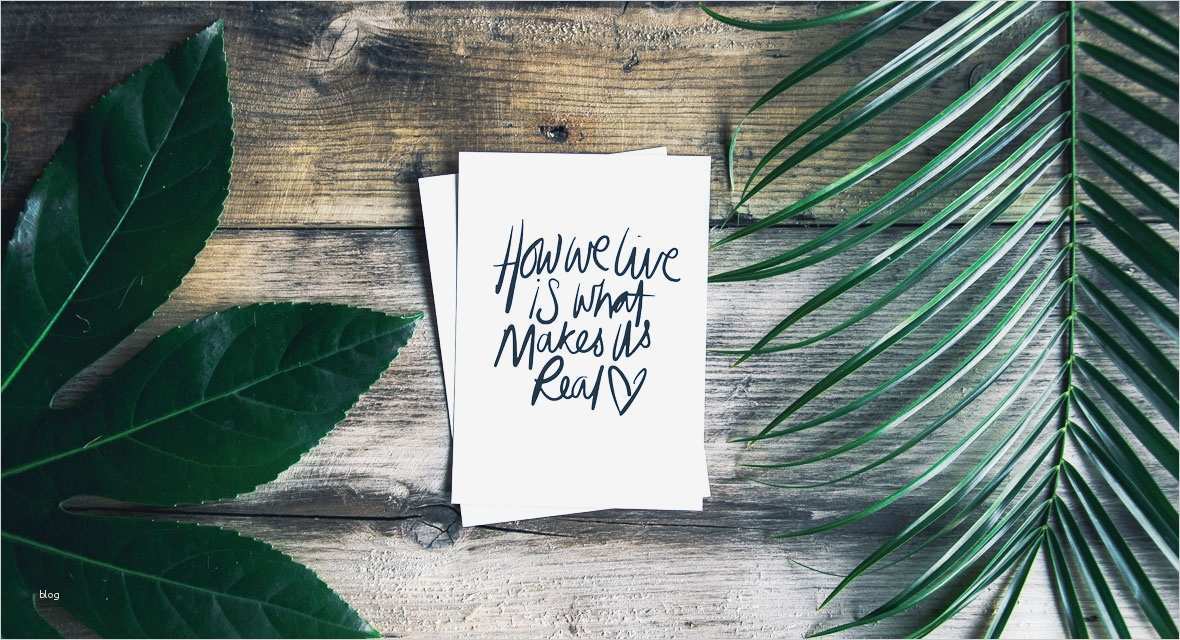 How we live
is what
Makes Us
Real
blog